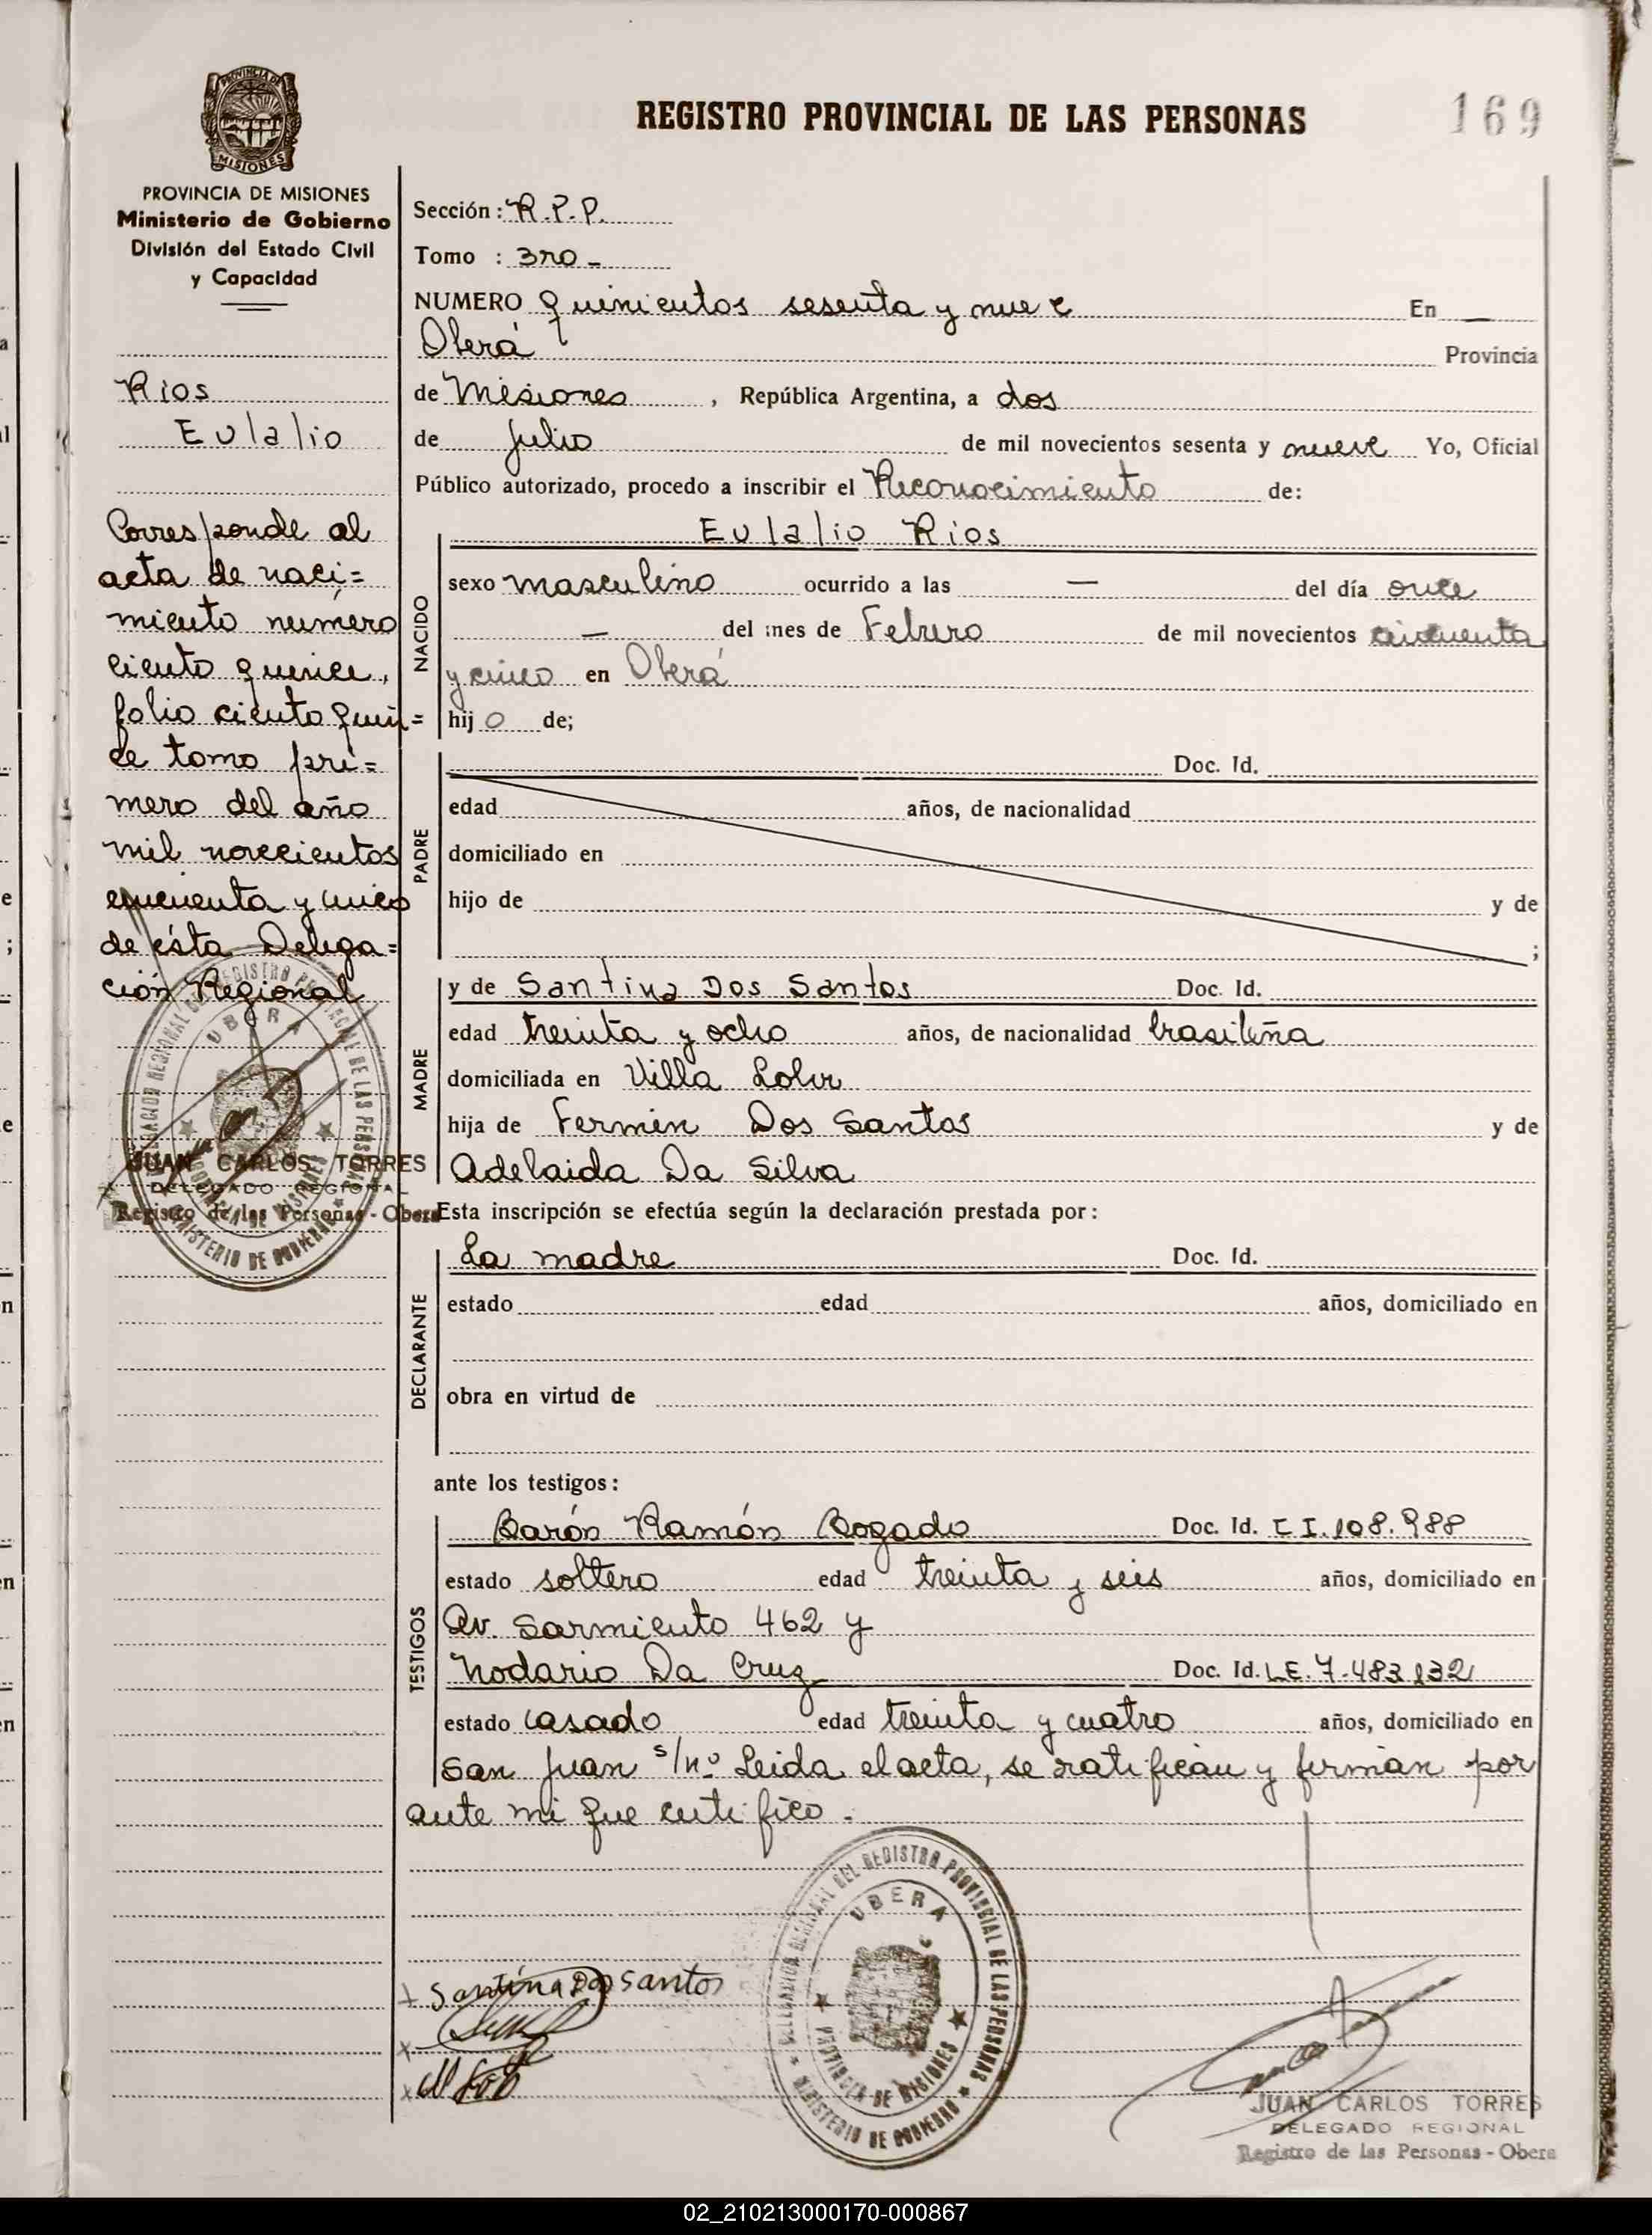 REGISTRO PROVINCIAL DE LAS PERSONAS
169
PROVINCIA DE MISIONES
Ministerio de Gobierno
División del Estado Civil
y Capacidad
Rios
Eulalio
Corresponde al
acta de naci=
miento número
ciento quince,
folio ciento quin=
ce tomo pri=
mero del año
mil novecientos
cincuenta y cinco
de ésta Delega=
ción Regional
JUAN CARLOS TORRES
DELEGADO REGIONAL
Registro de las Personas - Obera
Sección: R.P.P.
Tomo : 3ro -
NUMERO quinientos sesenta y nueve En —
Oberá Provincia
de Misiones, República Argentina, a dos
de Julio de mil novecientos sesenta y nueve Yo, Oficial
Público autorizado, procedo a inscribir el Reconocimiento de:
NACIDO
Eulalio Rios
sexo masculino ocurrido a las — del día once
— del mes de Febrero de mil novecientos cincuenta
y cinco en Oberá
hijo de;
PADRE
Doc. Id.
edad años, de nacionalidad
domiciliado en
hijo de y de
;
MADRE
y de Santina Dos Santos Doc. Id.
edad treinta y ocho años, de nacionalidad brasileña
domiciliada en Villa
hija de Fermin Dos Santos y de
Adelaida Da Silva
Esta inscripción se efectúa según la declaración prestada por:
DECLARANTE
La madre Doc. Id.
estado edad años, domiciliado en
obra en virtud de
ante los testigos:
TESTIGOS
Barón Ramón Bogado Doc. Id. C I. 108.988
estado soltero edad treinta y seis años, domiciliado en
Av. Sarmiento 462 y
Nodario Da Cruz Doc. Id. L.E. 7.483.132
estado casado edad treinta y cuatro años, domiciliado en
San Juan s/nº Leida el acta, se ratifican y firman por
ante mi que certifico.
DELEGACION REGIONAL DEL REGISTRO PROVINCIAL DE LAS PERSONAS
OBERA
PROVINCIA DE MISIONES
MINISTERIO DE GOBIERNO
Santina Dos Santos
JUAN CARLOS TORRES
DELEGADO REGIONAL
Registro de las Personas - Obera
02_210213000170-000867